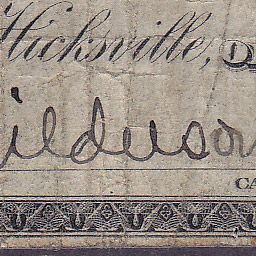 Hicksville, D
ilduson
CA